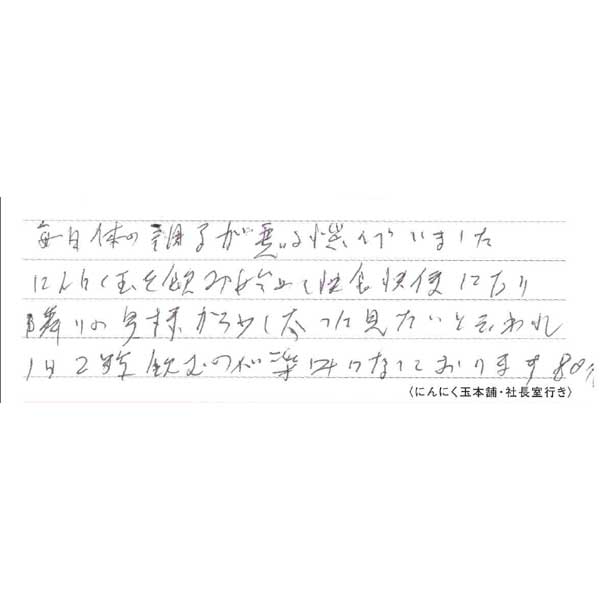 毎日体の調子が いました
にんにく玉を飲み始め 快食快便になり
隣りの奥様から少し太った見たいと言われ
1日2粒飲むのが楽 になっております 80
(にんにく玉本舗・社長室行き)